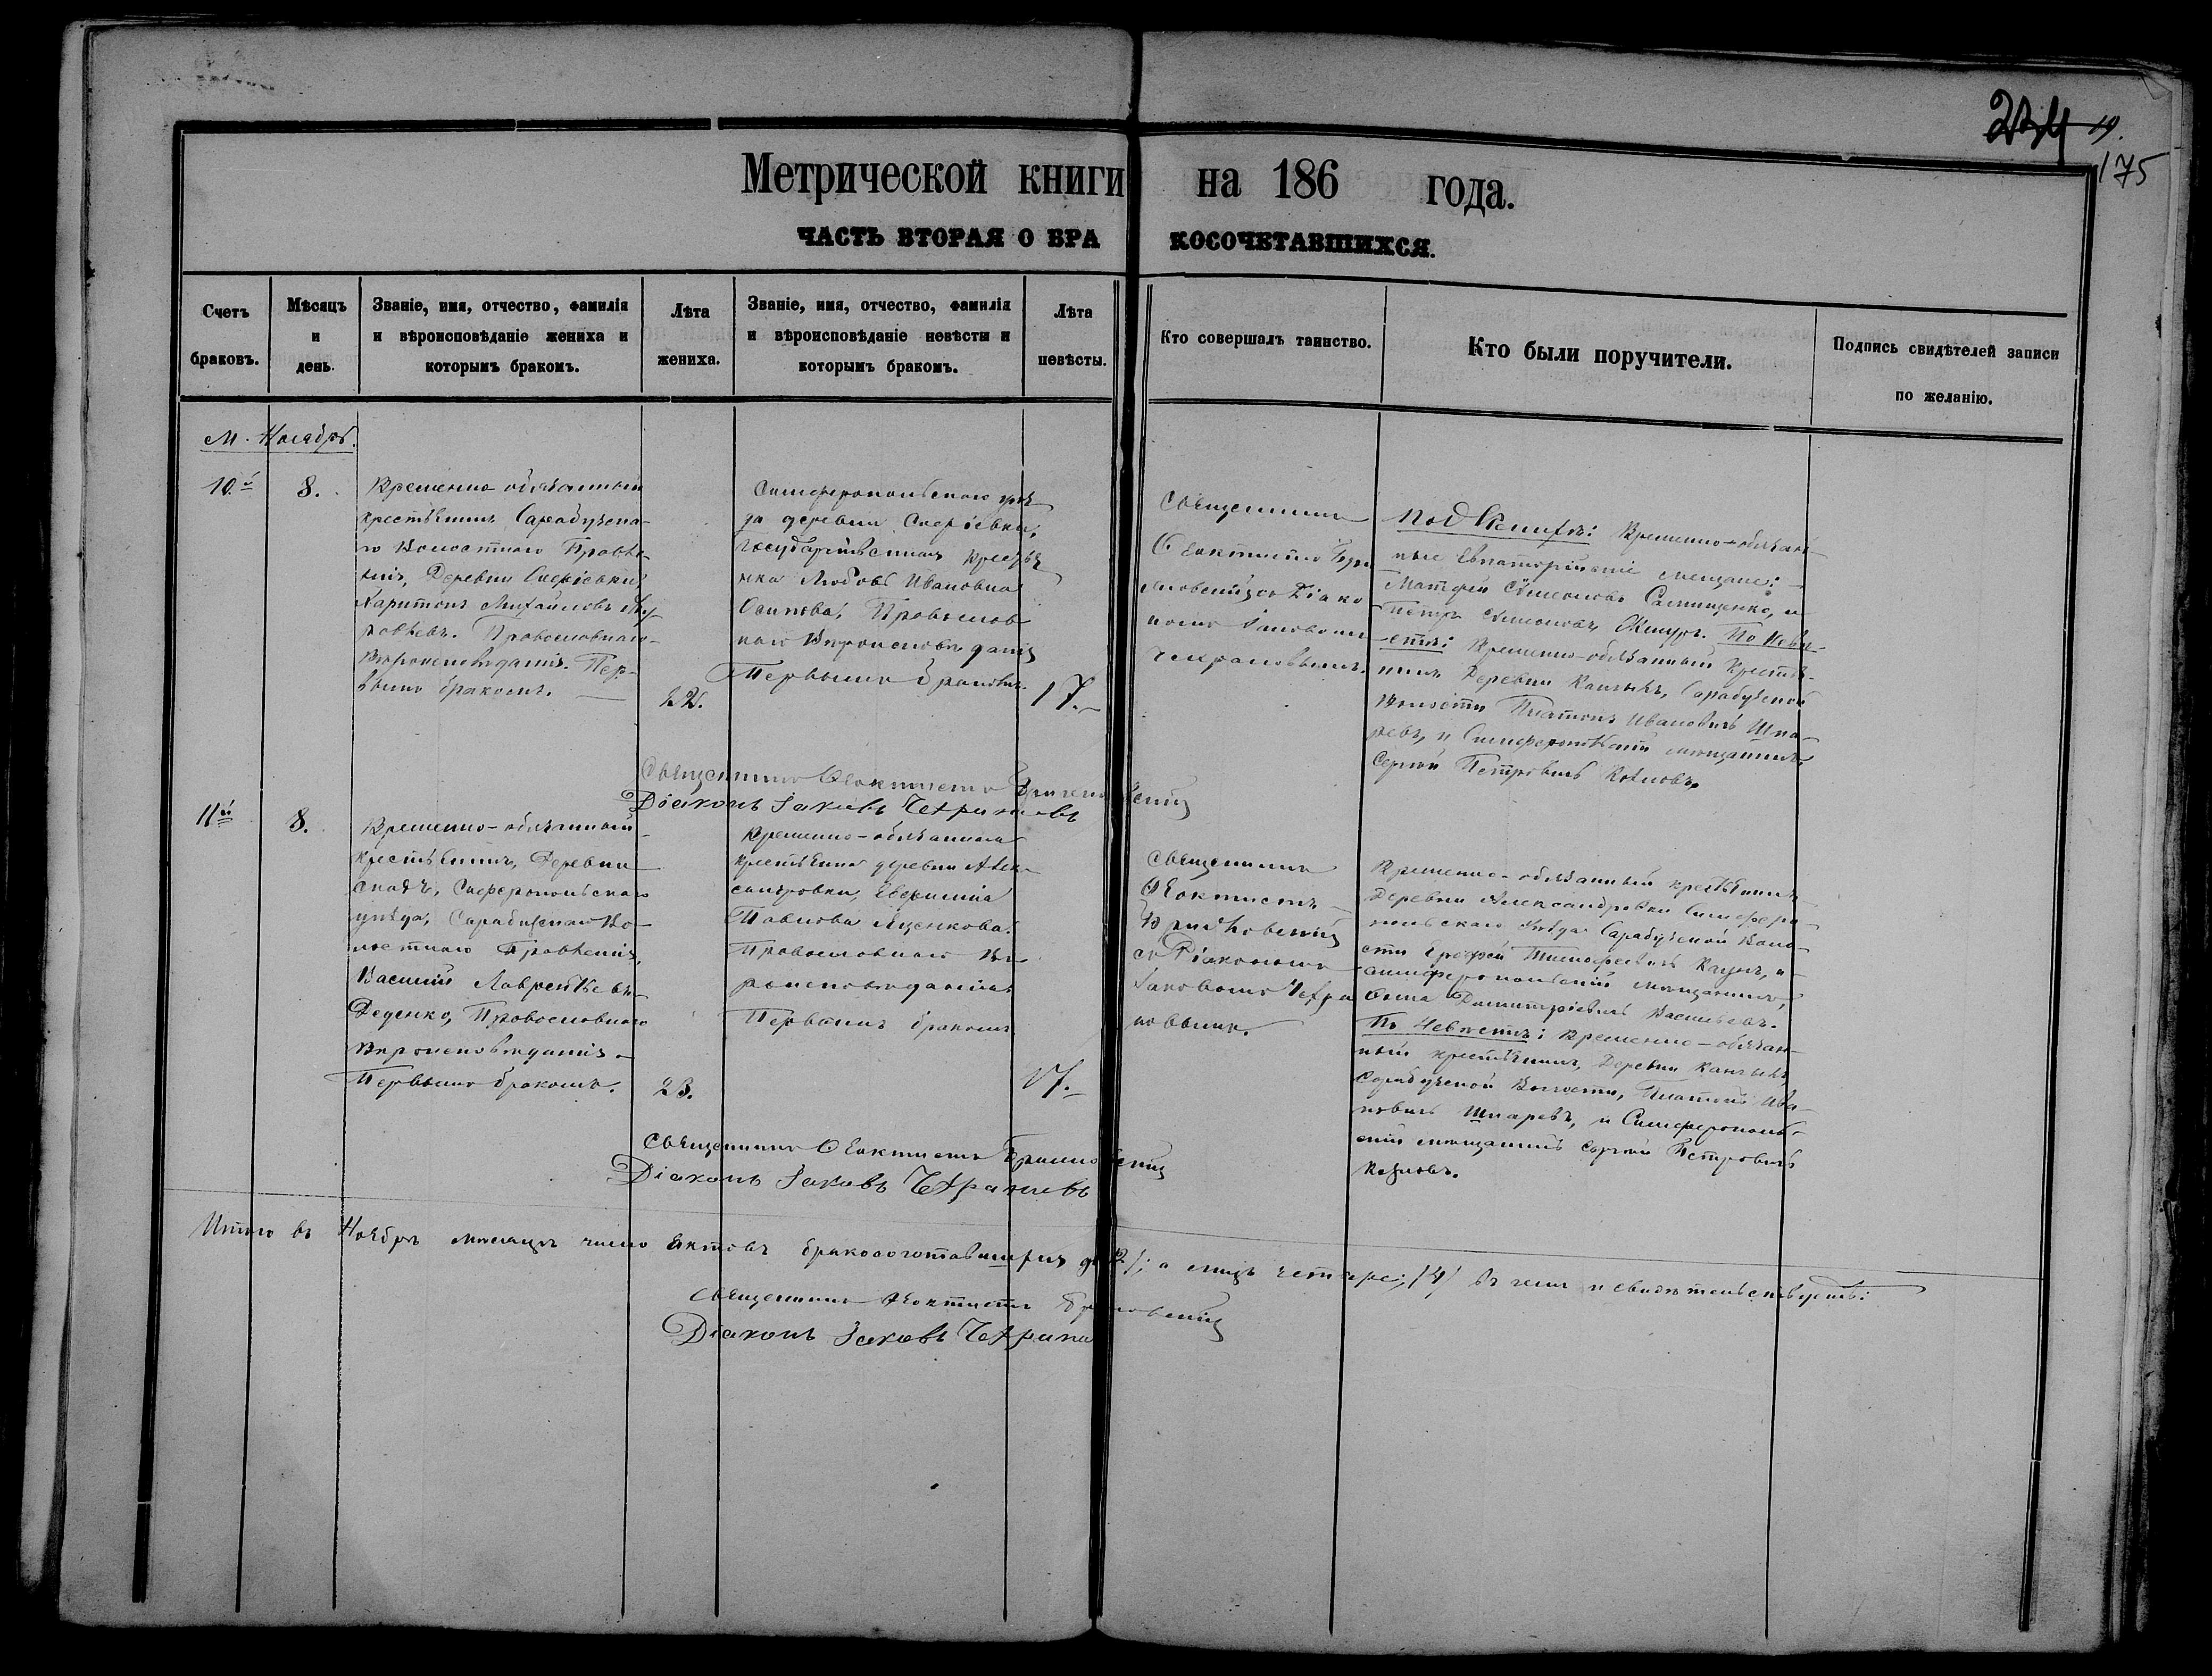 234 19.
175
Метрической книги на 186 года.
ЧАСТЬ ВТОРАЯ О БРАКОСОЧЕТАВШИХСЯ.
Счетъ браковъ.
Мѣсяцъ и день.
Званіе, имя, отчество, фамилія
и вѣроисповѣданіе жениха и
которымъ бракомъ.
Лѣта жениха.
Званіе, имя, отчество, фамилія
и вѣроисповѣданіе невѣсты и
которымъ бракомъ.
Лѣта невѣсты.
Кто совершалъ таинство.
Кто были поручители.
Подпись свидѣтелей записи
по желанію.
М. Ноябрь.
10.й
8.
Временно обязанный
крестьянинъ Сарабузска-
го Волостнаго Правле-
нія, Деревни
Харитонъ Михайловъ
Православнаго
Вѣроисповѣданія. Пер-
вымъ бракомъ.
22.
Симферопольскаго уѣз
да деревни
государственная крестьян
ка Любовь Ивановна
Осипова, Православ
наго Вѣроисповѣданія
Первымъ бракомъ.
17.
Священникъ
Ѳеоктистъ
съ Діако
номъ Іаковомъ
По Женихѣ: Временно-обязан-
ные Евпаторійскіе мещане:
Матфей Симеоновъ и
Петръ Симеоновъ По Невѣ-
стѣ: Временно-обязанный Крестья-
нинъ Деревни Сарабузской
Волости Платонъ Ивановичъ Шпа-
ревъ, и Симферопольскій мещанинъ
Сергѣй Петровичъ Козловъ.
Священникъ Ѳеоктистъ
Діаконъ Іаковъ Чехрановъ
11й
8.
Временно-обязанный
крестьянинъ, Деревни
Симферопольскаго
уѣзда, Сарабузскаго Во-
лостнаго Правленія,
Василій Лаврентьевъ
Деденко, Православнаго
Вѣроисповѣданія
Первымъ бракомъ.
23.
Временно-обязанная
крестьянка деревни Алек-
сандровки, Евфимія
Павлова Яценкова.
Православнаго Вѣ-
роисповѣданія.
Первымъ бракомъ
17.
Священникъ
Ѳеоктистъ
съ Діакономъ
Іаковомъ Чехра
новымъ.
Временно-обязанный крестьянинъ
Деревни Александровки Симферо-
польскаго уѣзда Сарабузской Воло-
сти Тимофеевичъ и
Симферопольскій мещанинъ,
Ѳома Димитріевичъ Васильевъ.
По Невѣстѣ: Временно-обязан-
ный крестьянинъ, Деревни
Сарабузской Волости, Платонъ Ива-
новичъ Шпаревъ, и Симферополь-
скій мещанинъ Сергѣй Петровичъ
Козловъ.
Священникъ Ѳеоктистъ
Діаконъ Іаковъ Чехрановъ
Итого въ Ноябрѣ месяцѣ число актовъ бракосочетавшихся 2; а лицъ четыре; /4/ въ чемъ и свидѣтельствуемъ:
Священникъ Ѳеоктистъ
Діаконъ Іаковъ